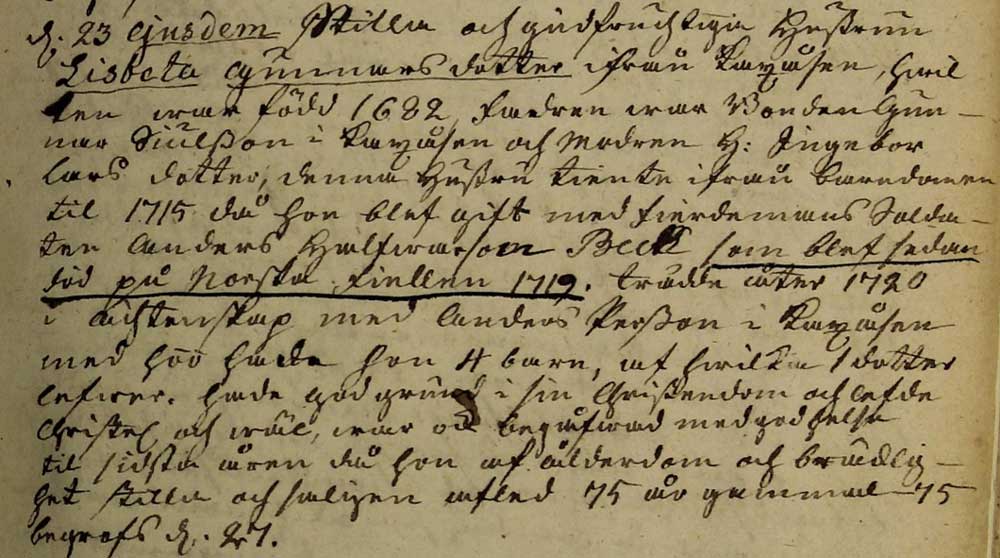 d. 23 ejusdem Stilla och gudfruchtiga Hustrun
Lisbeta Gunnars dotter ifrån Kaxåsen, hwil
ken war född 1682, Fadren war Bonden Gun-
nar Siulsson i Kaxåsen och Modren H: Ingebor
Lars dotter, denna Hustru tiente ifrån barndomen
til 1715 då hon blef gift med fierdemans Solda-
ten Anders Halfwarson Beck som blef sedan
död på Norska fiellen 1719. trädde åter 1720
i ächtenskap med Anders Persson i Kaxåsen
med hade hon 4 barn, af hwilka 1 dotter
lefwer. hade god grund i sin Christendom och lefde
Christel och wäl, war och begåfwad med god helsa
til sidsta åren då hon af ålderdom och brädlig-
het stilla och saligen afled 75 år gammal - 75
begrofs d. 27.